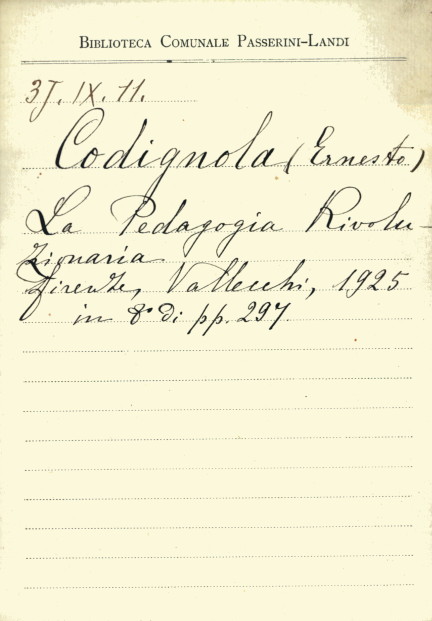 BIBLIOTECA COMUNALE PASSERINI-LANDI
3J. IX. 11.
Codignola (Ernesto)
La Pedagogia Rivolu-
zionaria
Firenze, Vallecchi, 1925
in 8° di pp. 297.